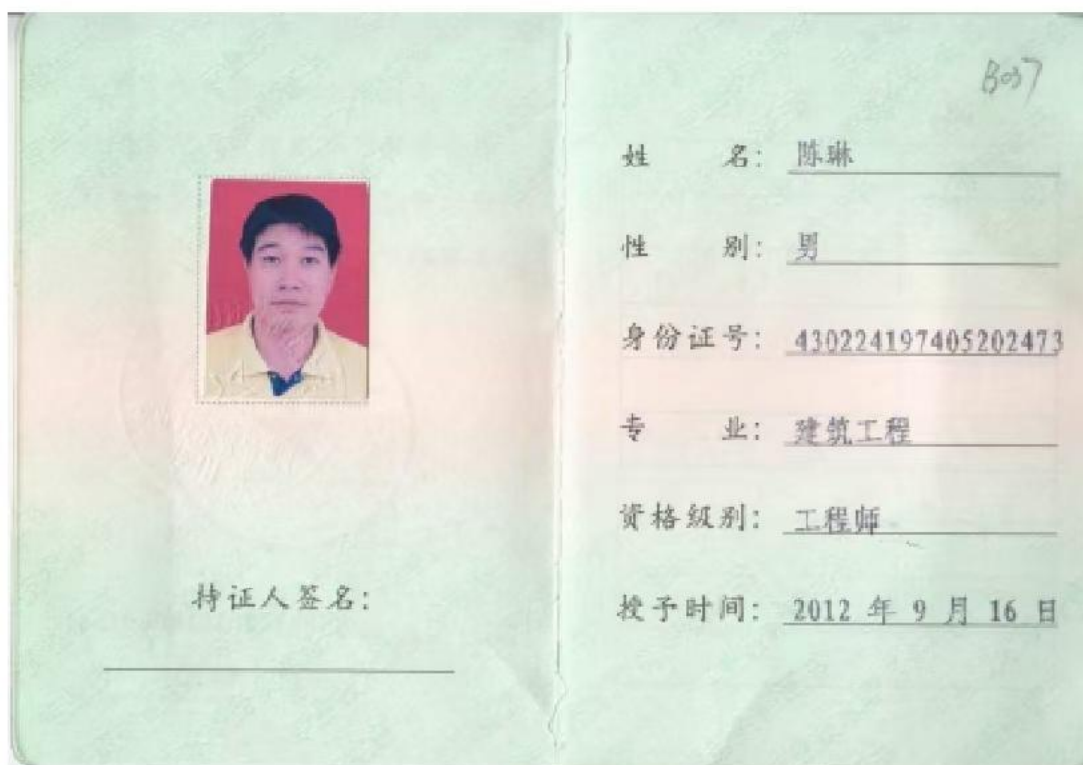 持证人签名：
B037
姓 名： 陈琳
性 别： 男
身份证号： 430224197405202473
专 业： 建筑工程
资格级别： 工程师
授予时间： 2012 年 9 月 16 日